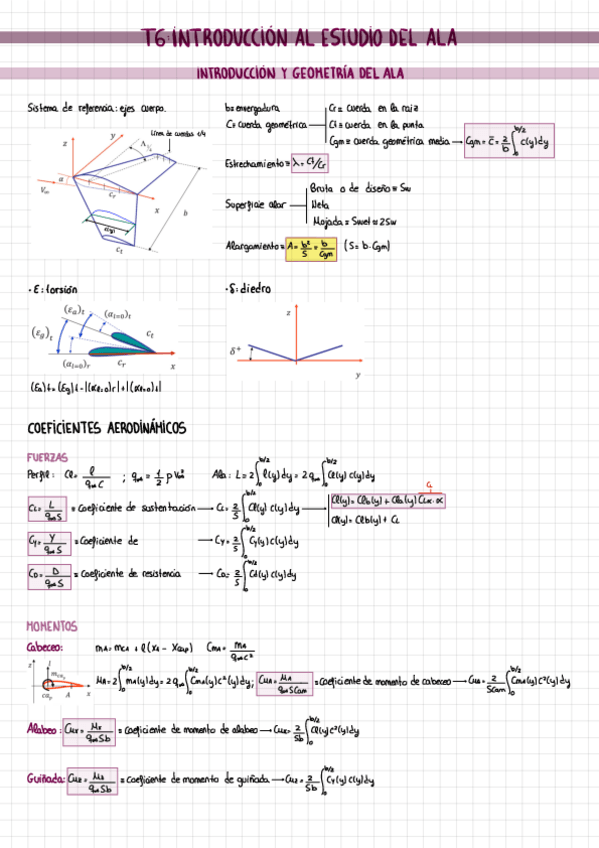 T6: INTRODUCCIÓN AL ESTUDIO DEL ALA
INTRODUCCIÓN Y GEOMETRÍA DEL ALA
Sistema de referencia: ejes cuerpo.
Línea de cuerdas c/4
z
y
Λ¼
α
V∞
c_r
x
b
c(y)
c_t
b≡envergadura
C≡cuerda geométrica
Cr≡ cuerda en la raiz
Ct≡cuerda en la punta
Cgm≡ cuerda geométrica media → Cgm = c̄ = 2/b ∫₀^{b/2} c(y)dy
Estrechamiento≡ λ = Ct/Cr
Superficie alar
Bruta o de diseño≡ Sw
Neta
Mojada≡ Swet≈2Sw
Alargamiento≡ A = b²/S = b/Cgm (S= b·Cgm)
· ε: torsión
· δ: diedro
(ε_a)_t
(α_{l=0})_t
(ε_g)_t
c_t
(α_{l=0})_r
c_r
x
z
δ⁺
y
(εa)t = (εg)t - |(αl=0)r| + |(αl=0)t|
COEFICIENTES AERODINÁMICOS
FUERZAS
Perfil: Cl = l/(q∞C) ; q∞ = 1/2 ρ V∞² Ala: L = 2∫₀^{b/2} l(y)dy = 2q∞∫₀^{b/2} Cl(y) c(y)dy
CL
CL = L/(q∞S) ≡ coeficiente de sustentación → CL = 2/S ∫₀^{b/2} Cl(y) c(y)dy →
Cl(y) = Clb(y) + Cla(y) CLα·α
Cl(y) = Clb(y) + CL
CY = Y/(q∞S) ≡ Coeficiente de → CY = 2/S ∫₀^{b/2} Cy(y) c(y)dy
CD = D/(q∞S) ≡ Coeficiente de resistencia → CD = 2/S ∫₀^{b/2} Cd(y) c(y)dy
MOMENTOS
Cabeceo: mA = mCA + l(XA - Xcap) CmA = mA/(q∞c²)
z
l
m_{ca_p}
ca_p
A
x
MA = 2∫₀^{b/2} mA(y)dy = 2q∞∫₀^{b/2} CmA(y) c²(y)dy; CMA = MA/(q∞SCam) ≡ coeficiente de momento de cabeceo → CMA = 2/(SCam) ∫₀^{b/2} CmA(y) c²(y)dy
Alabeo: CMX = MX/(q∞Sb) ≡ coeficiente de momento de alabeo → CMX = 2/(Sb) ∫₀^{b/2} Cl(y) c²(y)dy
Guiñada: CMZ = /(q∞Sb) ≡ coeficiente de momento de guiñada → CMZ = 2/(Sb) ∫₀^{b/2} CY(y) c(y)dy